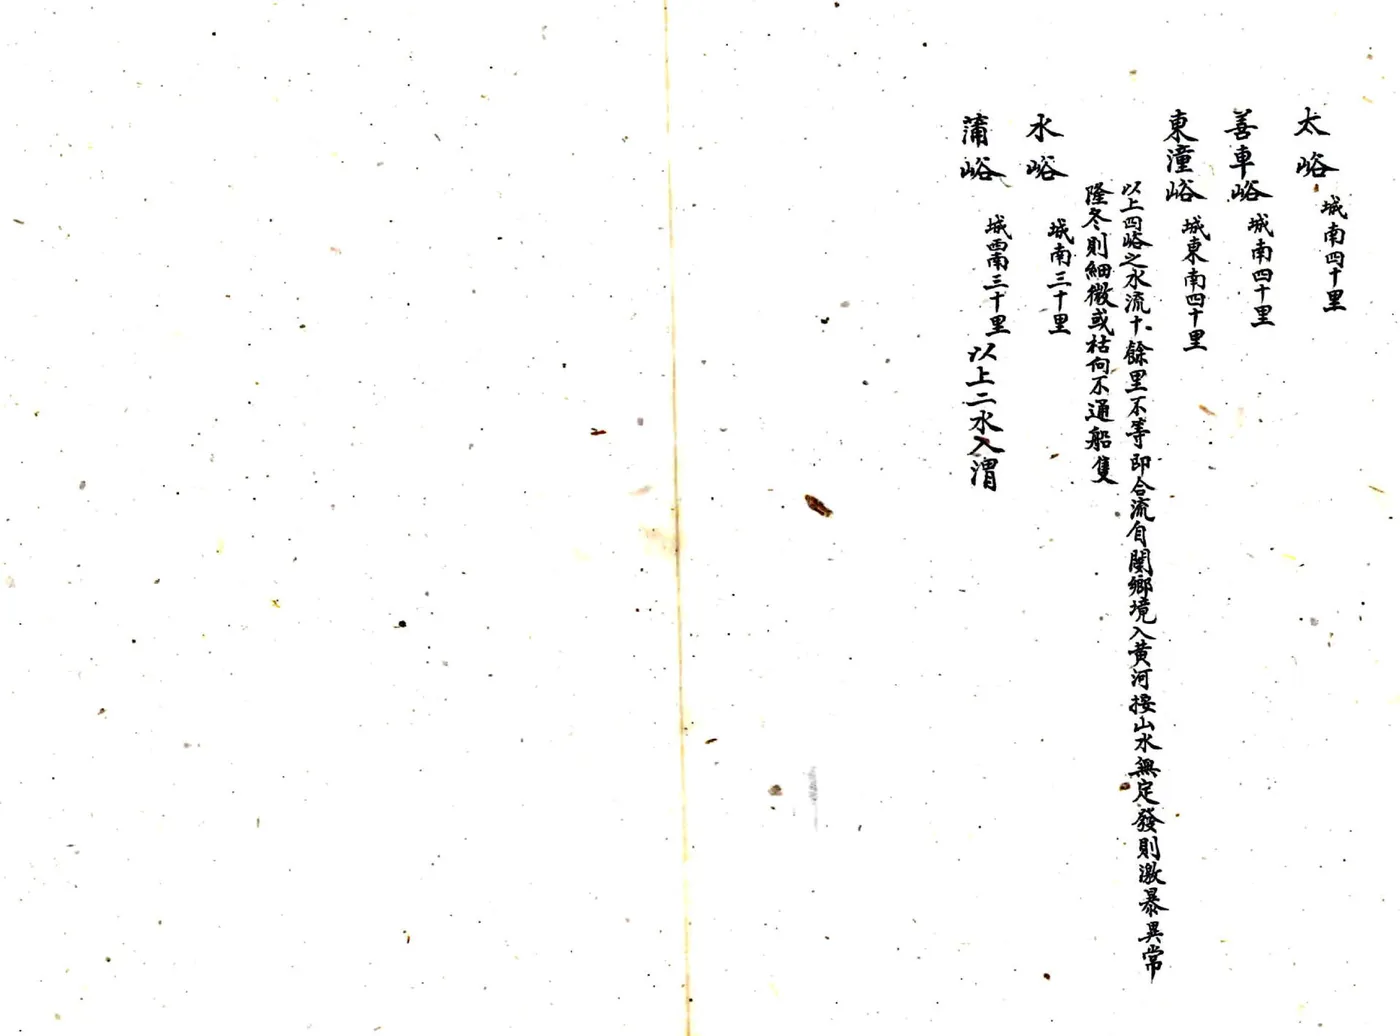 太峪 城南四十里
善車峪 城南四十里
東潼峪 城東南四十里
以上四峪之水流十餘里不等即合流自閿鄉境入黄河按山水無定發則激暴異常
隆冬則細微或枯向不通船隻
水峪 城南三十里
蒲峪 城西南三十里以上二水入渭